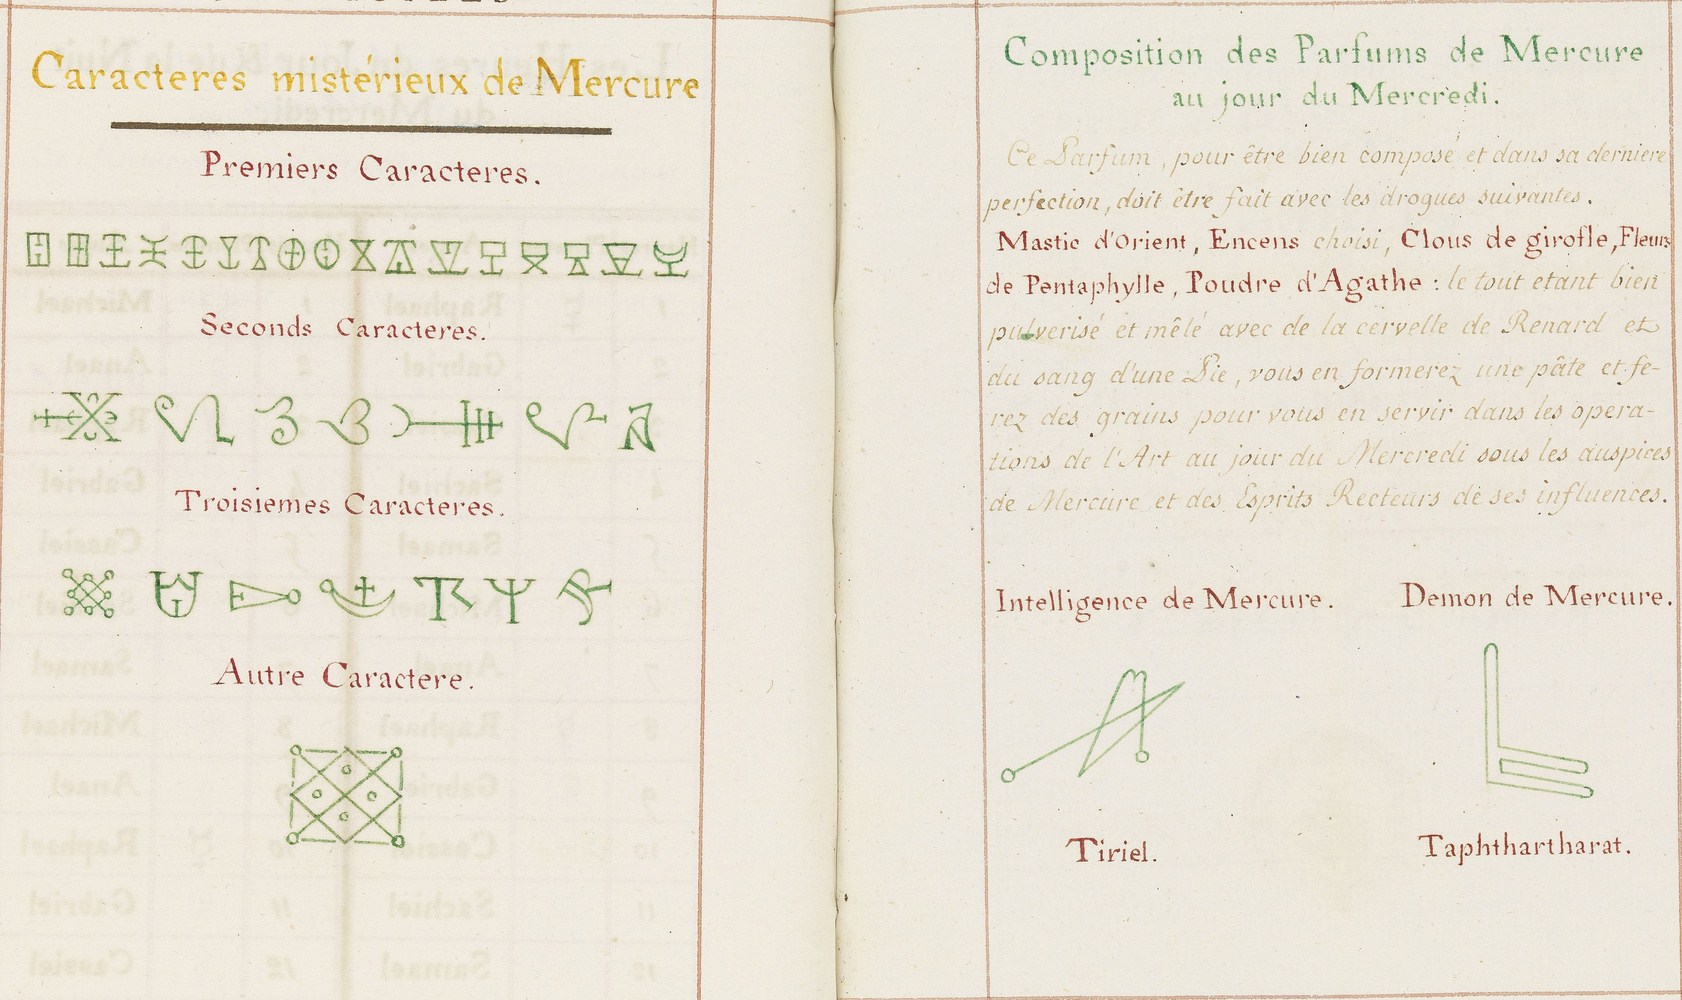 Caracteres mistérieux de Mercure
Premiers Caracteres.
Seconds Caracteres.
Troisiemes Caracteres.
Autre Caractere.
Composition des Parfums de Mercure
au jour du Mercredi.
Ce Parfum, pour être bien composé et dans sa derniere
perfection, doit être fait avec les drogues suivantes.
Mastic d'Orient, Encens choisi, Clous de girofle, Fleurs
de Pentaphylle, Poudre d'Agathe : le tout etant bien
pulverisé et mêlé avec de la cervelle de Renard et
du sang d'une Pie, vous en formerez une pâte et fe-
rez des grains pour vous en servir dans les opera-
tions de l'Art au jour du Mercredi sous les auspices
de Mercure et des Esprits Recteurs de ses influences.
Intelligence de Mercure. Demon de Mercure.
Tiriel. Taphthartharat.